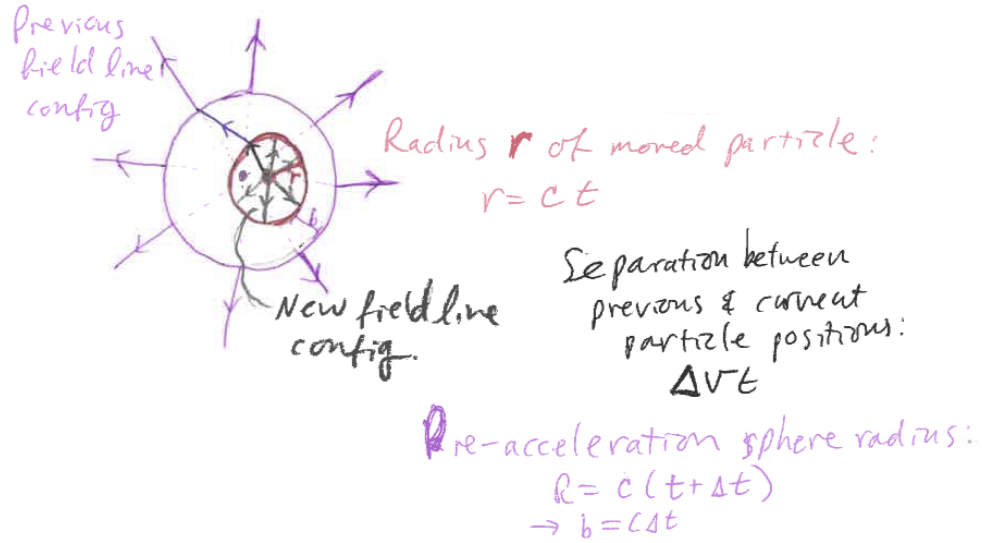 Previous
field line
config
Radius r of moved particle:
r = ct
r
b
New field line
config.
Separation between
previous & current
particle positions:
Δvt
Pre-acceleration sphere radius:
R = c(t+Δt)
→ b = cΔt